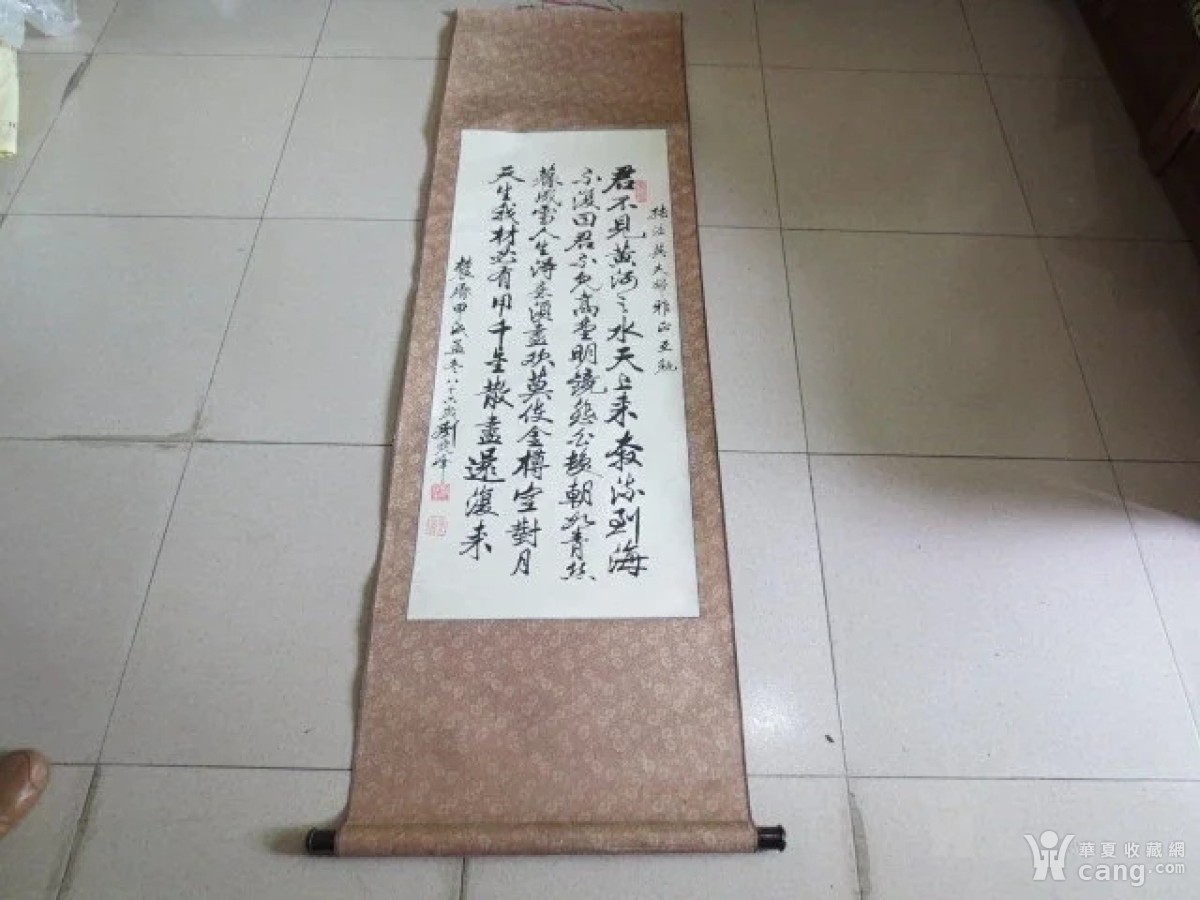 法英大雅正
君不見黃河之水天上来奔流到海
不復回君不見高堂明鏡悲白髮朝如青絲
暮成雪人生得意須盡欢莫使金樽空對月
天生我材必有用千金散盡還復来
農曆甲戌孟冬八十六歲劉峰
華夏收藏網
cang.com